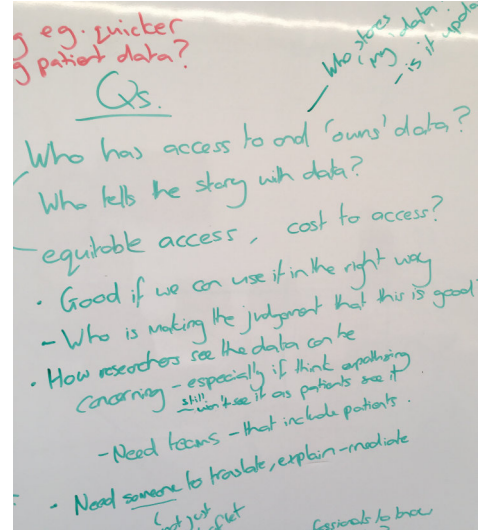 g eg. quicker
g patient data?
Who stores
my data.
- is it upda
Qs.
Who has access to and 'owns' data?
Who tells the story with data?
- equitable access, cost to access?
· Good if we can use it in the right way
- Who is making the judgement that this is good
· How researchers see the data can be
concerning - especially if think empathising
still won't see it as patients see it.
- Need teams - that include patients.
· Need someone to translate, explain - mediate
not just
to know